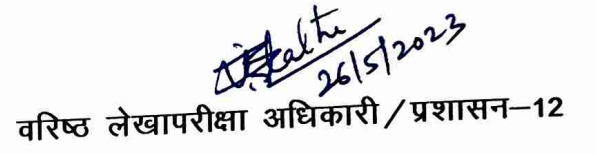 26/5/2023
वरिष्ठ लेखापरीक्षा अधिकारी / प्रशासन–12